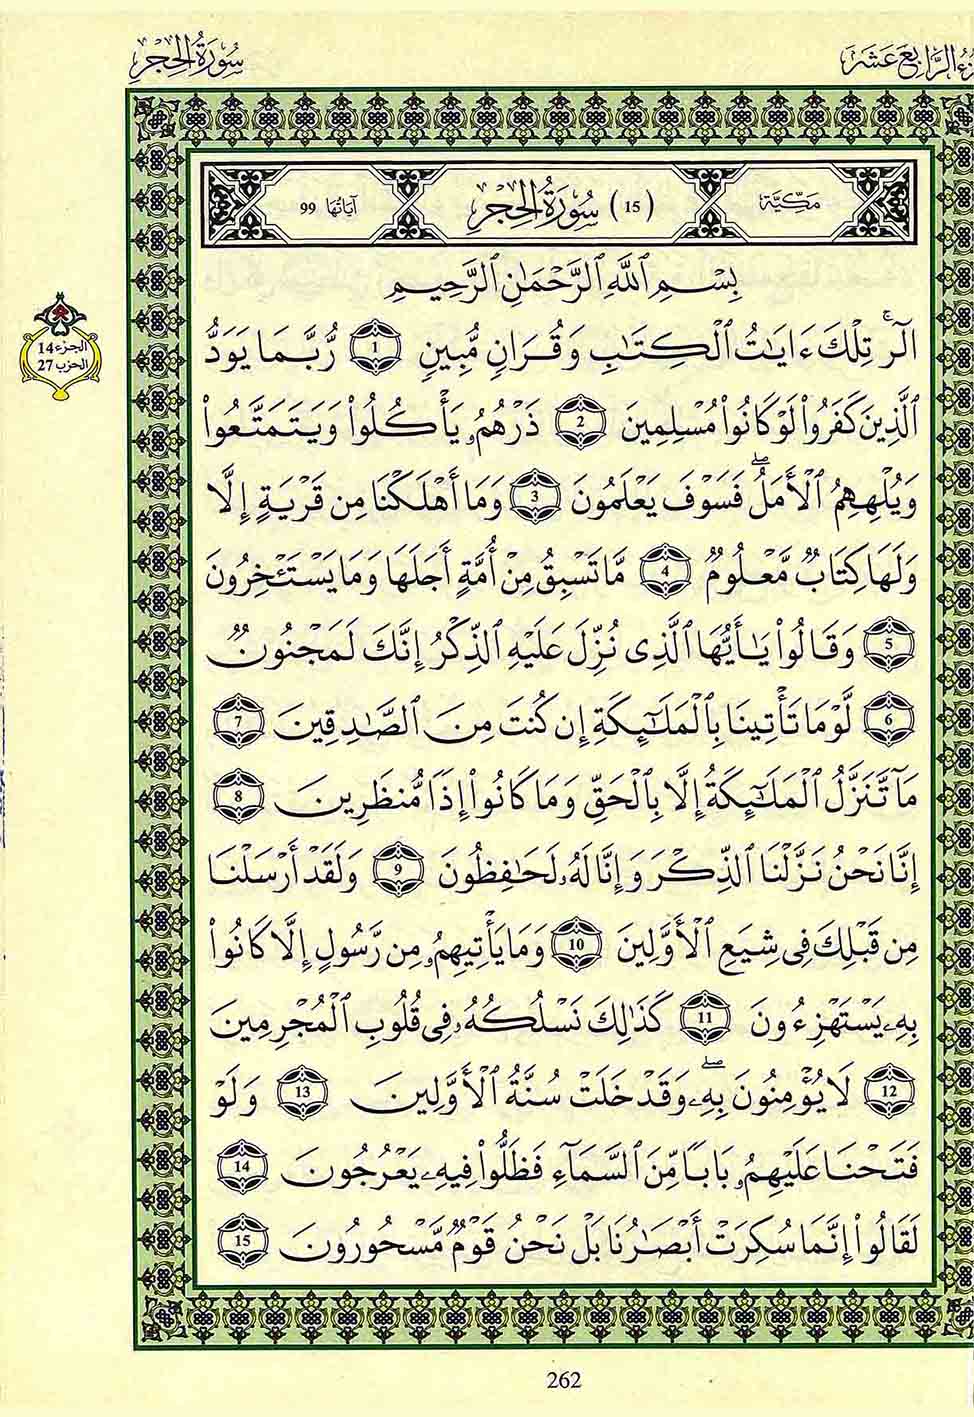 الرَّابِعَ عَشَرَ سُورَةُ الْحِجْرِ
مَكِّيَّة (15) سُورَةُ الْحِجْرِ آيَاتُهَا 99
بِسْمِ ٱللَّهِ ٱلرَّحْمَٰنِ ٱلرَّحِيمِ
الجزء 14
الحزب 27
الٓرۚ تِلْكَ ءَايَٰتُ ٱلْكِتَٰبِ وَقُرَانٍ مُّبِينٍ 1 رُّبَّمَا يَوَدُّ
ٱلَّذِينَ كَفَرُواْ لَوْ كَانُواْ مُسْلِمِينَ 2 ذَرْهُمُۥ يَأْكُلُواْ وَيَتَمَتَّعُواْ
وَيُلْهِهِمُ ٱلْأَمَلُۖ فَسَوْفَ يَعْلَمُونَ 3 وَمَا أَهْلَكْنَا مِن قَرْيَةٍ إِلَّا
وَلَهَا كِتَابٌ مَّعْلُومٌ 4 مَّا تَسْبِقُ مِنْ أُمَّةٍ أَجَلَهَا وَمَا يَسْتَـْٔخِرُونَ
5 وَقَالُواْ يَٰأَيُّهَا ٱلَّذِى نُزِّلَ عَلَيْهِ ٱلذِّكْرُ إِنَّكَ لَمَجْنُونٌ
6 لَّوْ مَا تَأْتِينَا بِٱلْمَلَٰٓئِكَةِ إِن كُنتَ مِنَ ٱلصَّٰدِقِينَ 7
مَآ تَّنَزَّلُ ٱلْمَلَٰٓئِكَةُ إِلَّا بِٱلْحَقِّ وَمَا كَانُواْ إِذًا مُّنظَرِينَ 8
إِنَّا نَحْنُ نَزَّلْنَا ٱلذِّكْرَ وَإِنَّا لَهُۥ لَحَٰفِظُونَ 9 وَلَقَدْ أَرْسَلْنَا
مِن قَبْلِكَ فِى شِيَعِ ٱلْأَوَّلِينَ 10 وَمَا يَأْتِيهِمُۥ مِن رَّسُولٍ إِلَّا كَانُواْ
بِهِۦ يَسْتَهْزِءُونَ 11 كَذَٰلِكَ نَسْلُكُهُۥ فِى قُلُوبِ ٱلْمُجْرِمِينَ
12 لَا يُؤْمِنُونَ بِهِۦۖ وَقَدْ خَلَتْ سُنَّةُ ٱلْأَوَّلِينَ 13 وَلَوْ
فَتَحْنَا عَلَيْهِمُۥ بَابًا مِّنَ ٱلسَّمَآءِ فَظَلُّواْ فِيهِۦ يَعْرُجُونَ 14
لَقَالُواْ إِنَّمَا سُكِرَتْ أَبْصَٰرُنَا بَلْ نَحْنُ قَوْمٌ مَّسْحُورُونَ 15
262